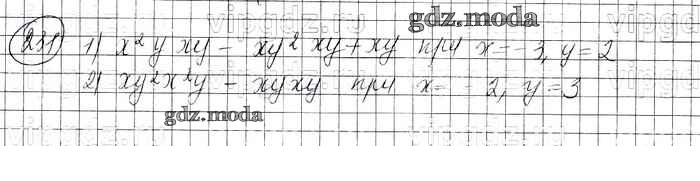 vipgdz.ru gdz.moda vipgdz
231) 1) x² y xy - xy² xy + xy при x = -3, y = 2
2) xy²x²y - xyxy при x = -2, y = 3
gdz.moda
vipgdz.ru vipgdz.ru